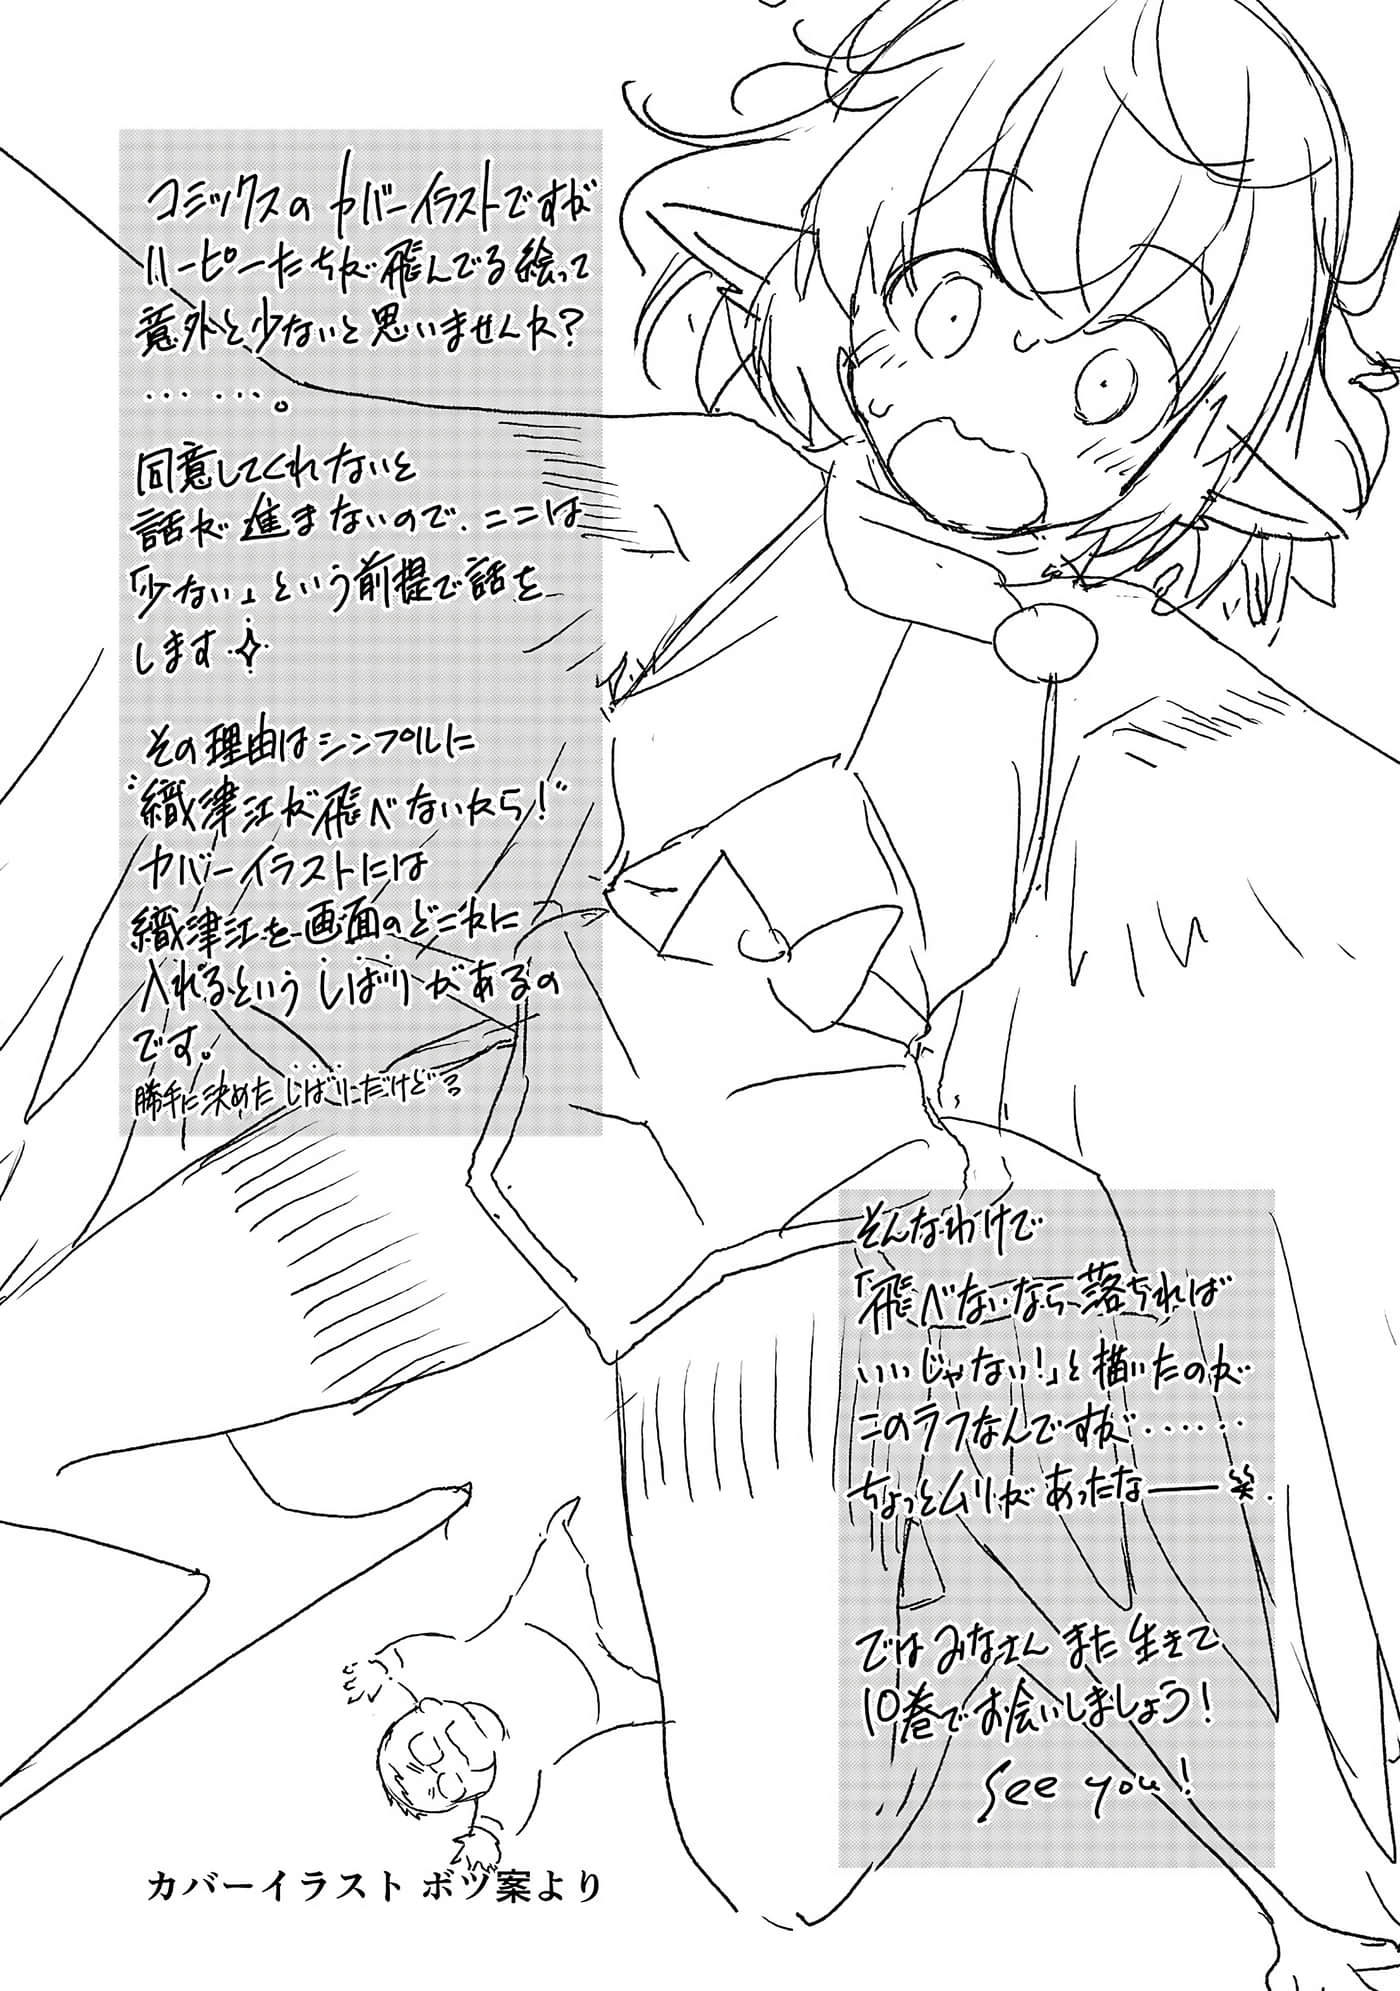 コミックスのカバーイラストですが
ハーピーたちが飛んでる絵って
意外と少ないと思いませんか?
‥‥ ‥‥。
同意してくれないと
話が進まないので、ここは
「少ない」という前提で話を
します✧
その理由はシンプルに
"織津江が飛べないから!"
カバーイラストには
織津江を画面のどこかに
入れるという しばりがあるの
です。
勝手に決めた しばりだけどっ
そんなわけで
「飛べないなら落ちれば
いいじゃない!」と描いたのが
このラフなんですが‥‥‥
ちょっとムリがあったなー笑.
ではみなさん また生きて
10巻でお会いしましょう!
See you!
カバーイラスト ボツ案より